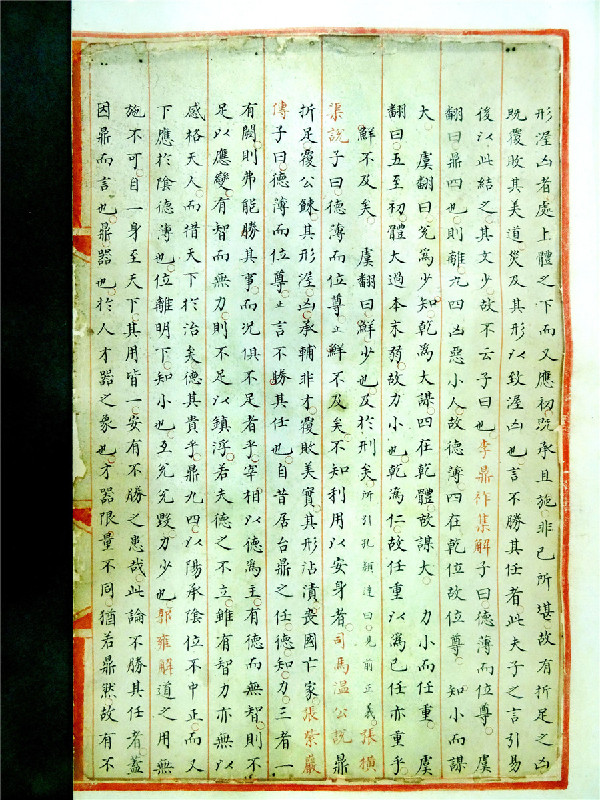 形渥凶者處上體之下而又應初既承且施非己所堪故有折足之凶
既覆敗其美道災及其形以致渥凶也言不勝其任者此夫子之言引易
後以此結之其文少故不云子曰也李鼎祚集解子曰德薄而位尊虞
翻曰鼎四也則離九四凶惡小人故德薄四在乾位故位尊 知小而謀
大 虞翻曰兌為少知乾為大謀四在乾體故謀大 力小而任重 虞
翻曰五至初體大過本末弱故力小也乾為仁故任重以為己任亦重乎
鮮不及矣 虞翻曰鮮少也及於刑矣所引孔穎達曰見前正義張橫
渠說子曰德薄而位尊止鮮不及矣不知利用以安身者司馬溫公說鼎
折足覆公餗其形渥凶承輔非才覆敗美實其形沾漬喪國亡家張紫巖
傳子曰德薄而位尊止言不勝其任也自昔居台鼎之任德知力三者一
有闕則弗能勝其事而況俱不足者乎宰相以德為主有德而無智則不
足以應變有智而無力則不足以鎮浮若夫德之不立雖有智力亦無以
感格天人而措天下於治矣德其貴乎鼎九四以陽承陰位不中正而又
下應於陰德薄也位離明下知小也互兌兌毀力少也郭雍解道之用無
施不可自一身至天下其用皆一安有不勝之患哉此論不勝其任者蓋
因鼎而言也鼎器也於人才器之象也才器限量不同猶若鼎然故有不